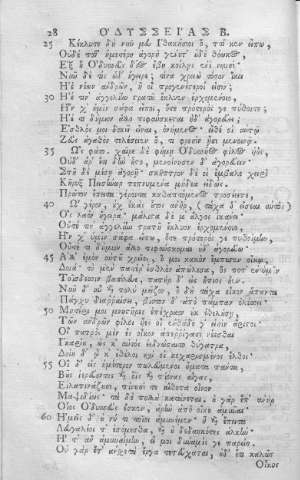 28 ΟΔΥΣΣΕΙΑΣ Β.
25 Κέκλυτε δὴ νῦν μευ Ἰθακήσιοι ὅ, ττι κεν εἴπω,
Οὐδέ ποθ' ἡμετέρη ἀγορὴ γένετ' οὐδὲ θόωκος,
Ἐξ οὗ Ὀδυσσεὺς δῖος ἔβη κοίλῃς ἐνὶ νηυσί.
Νῦν δὲ τίς ὧδ' ἤγειρε; τίνα χρειὼ τόσον ἵκει
Ἠὲ νέων ἀνδρῶν, ἢ οἳ προγενέστεροί εἰσιν;
30 Ἠέ τιν' ἀγγελίην στρατοῦ ἔκλυεν ἐρχομένοιο,
Ἥν χ' ἡμῖν σάφα εἴποι, ὅτε πρότερός γε πύθοιτο;
Ἠέ τι δήμιον ἄλλο πιφαύσκεται ἠδ' ἀγορεύει;
Ἐσθλός μοι δοκεῖ εἶναι, ὀνήμενος. εἴθε οἱ αὐτῷ
Ζεὺς ἀγαθὸν τελέσειεν ὅ, τι φρεσὶν ᾗσι μενοινᾷ.
35 Ὣς φάτο. χαῖρε δὲ φήμῃ Ὀδυσσῆος φίλος υἱὸς,
Οὐδ' ἄρ' ἔτι δὴν ἧστο, μενοίνησεν δ' ἀγορεύειν·
Στῆ δὲ μέσῃ ἀγορῇ· σκῆπτρον δέ οἱ ἔμβαλε χειρὶ
Κῆρυξ Πεισήνωρ πεπνυμένα μήδεα εἰδώς.
Πρῶτον ἔπειτα γέροντα καθαπτόμενος προσέειπε,
40 Ὦ γέρον, οὐχ ἑκὰς οὗτος ἀνὴρ, (τάχα δ' εἴσεαι αὐτὸς)
Ὃς λαὸν ἤγειρα· μάλιστα δέ μ' ἄλγος ἱκάνει.
Οὔτε τιν' ἀγγελίην στρατοῦ ἔκλυον ἐρχομένοιο,
Ἥν χ' ὑμῖν σάφα εἴπω, ὅτε πρότερός γε πυθοίμην,
Οὔτε τι δήμιον ἄλλο πιφαύσκομαι οὐδ' ἀγορεύω·
45 Ἀλλ' ἐμὸν αὐτοῦ χρεῖος, ὅ μοι κακὸν ἔμπεσεν οἴκῳ,
Δοιά· τὸ μὲν πατέρ' ἐσθλὸν ἀπώλεσα, ὅς ποτ' ἐν ὑμῖν
Τοίσδεσσιν βασίλευε, πατὴρ δ' ὣς ἤπιος ἦεν.
Νῦν δ' αὖ καὶ πολὺ μεῖζον, ὃ δὴ τάχα οἶκον ἅπαντα
Πάγχυ διαρραίσει, βίοτον δ' ἀπὸ πάμπαν ὀλέσσει·
50 Μητέρι μοι μνηστῆρες ἐπέχραον οὐκ ἐθελούσῃ,
Τῶν ἀνδρῶν φίλοι υἷες οἳ ἐνθάδε γ' εἰσὶν ἄριστοι·
Οἳ πατρὸς μὲν ἐς οἶκον ἀπερρίγασι νέεσθαι
Ἰκαρίου, ὥς κ' αὐτὸς ἐεδνώσαιτο θύγατρα,
Δοίη δ' ᾧ κ' ἐθέλοι καί οἱ κεχαρισμένος ἔλθοι·
55 Οἱ δ' εἰς ἡμέτερον πωλεύμενοι ἤματα πάντα,
Βοῦς ἱερεύοντες καὶ ὄϊς καὶ πίονας αἶγας,
Εἰλαπινάζουσι, πίνουσί τε αἴθοπα οἶνον
Μαψιδίως· τὰ δὲ πολλὰ κατάνεται. οὐ γὰρ ἔπ' ἀνὴρ
Οἷος Ὀδυσσεὺς ἔσκεν, ἀρὴν ἀπὸ οἴκου ἀμῦναι·
60 Ἡμεῖς δ' οὔ νύ τι τοῖοι ἀμυνέμεν· ἦ καὶ ἔπειτα
Λευγαλέοι τ' ἐσόμεσθα, καὶ οὐ δεδαηκότες ἀλκήν·
Ἦ τ' ἂν ἀμυναίμην, εἴ μοι δύναμίς γε παρείη.
Οὐ γὰρ ἔτ' ἀνσχετὰ ἔργα τετεύχαται, οὐδ' ἔτι καλῶς
Οἶκος